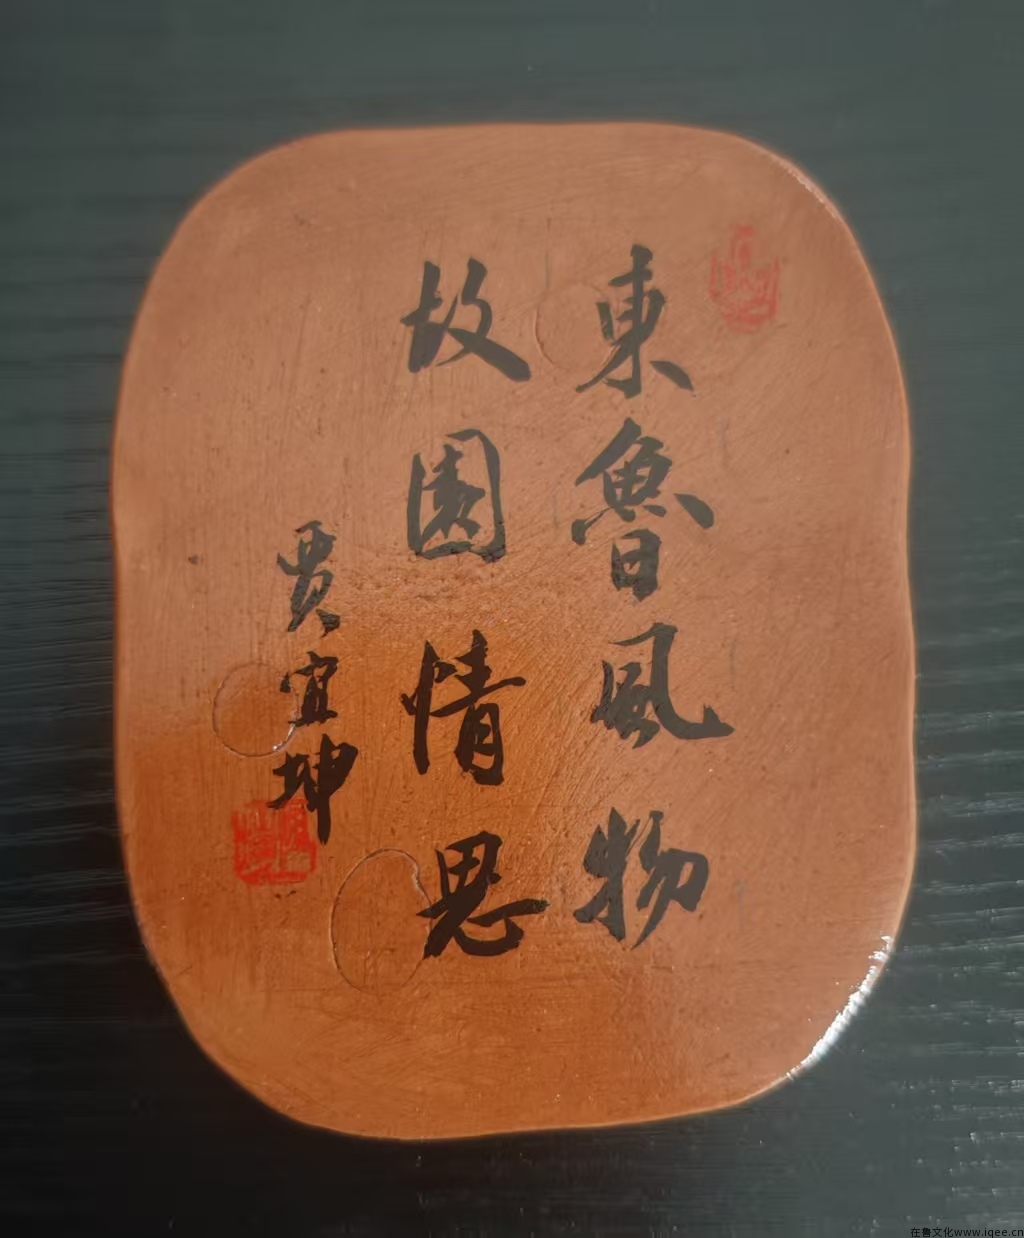 東魯風物
故園情思
贾宜坤
在鲁文化www.iqee.cn